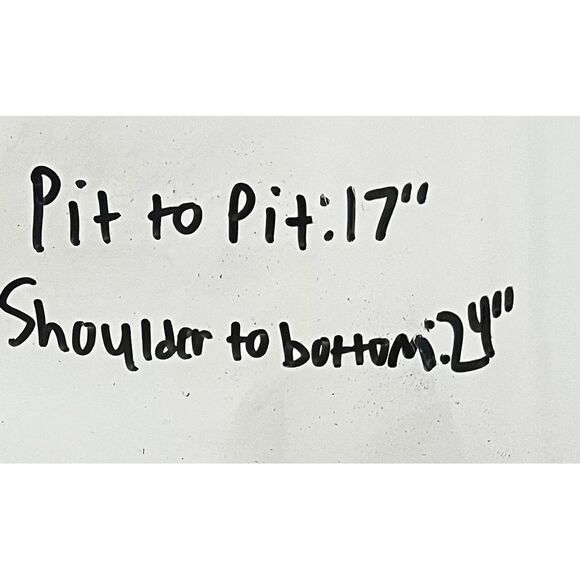 Pit to Pit:17"
Shoulder to bottom:24"